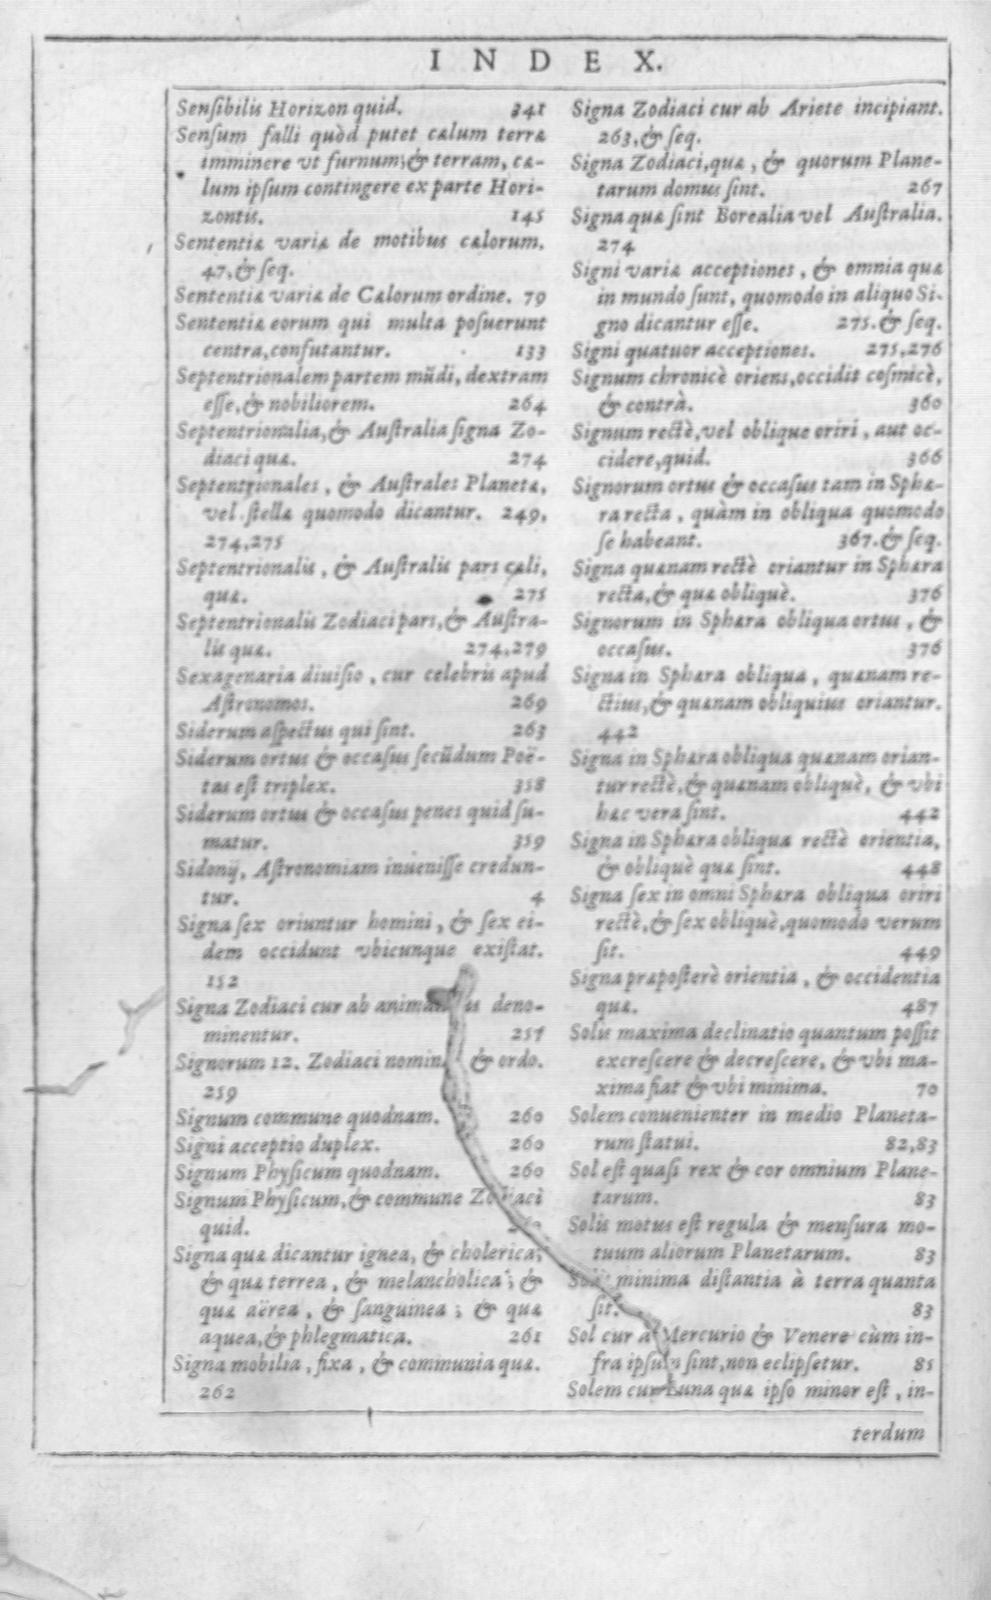 INDEX.
Sensibilis Horizon quid. 341
Sensum falli quòd putet cælum terræ
imminere vt furnum; & terram, cæ-
lum ipsum contingere ex parte Hori-
zontis. 145
Sententiæ variæ de motibus cælorum.
47, & seq.
Sententiæ variæ de Cælorum ordine. 79
Sententiæ eorum qui multa posuerunt
centra, confutantur. 133
Septentrionalem partem mũdi, dextram
esse, & nobiliorem. 264
Septentrionalia, & Australia signa Zo-
diaci quæ. 274
Septentrionales, & Australes Planetæ,
vel stellæ quomodo dicantur. 249,
274,275
Septentrionalis, & Australis pars cæli,
quæ. 275
Septentrionalis Zodiaci pars, & Austra-
lis quæ. 274,279
Sexagenaria diuisio, cur celebris apud
Astronomos. 269
Siderum aspectus qui sint. 263
Siderum ortus & occasus secũdum Poë-
tas est triplex. 358
Siderum ortus & occasus penes quid su-
matur. 359
Sidonij, Astronomiam inuenisse credun-
tur. 4
Signa sex oriuntur homini, & sex ei-
dem occidunt vbicunque existat.
152
Signa Zodiaci cur ab deno-
minentur. 257
Signorum 12. Zodiaci & ordo.
259
Signum commune quodnam. 260
Signi acceptio duplex. 260
Signum Physicum quodnam. 260
Signum Physicum, & commune Zodiaci
quid.
Signa quæ dicantur ignea, & cholerica;
& quæ terrea, & melancholica; &
quæ aërea, & sanguinea; & quæ
aquea, & phlegmatica. 261
Signa mobilia, fixa, & communia quæ.
262
Signa Zodiaci cur ab Ariete incipiant.
263, & seq.
Signa Zodiaci, quæ, & quorum Plane-
tarum domus sint. 267
Signa quæ sint Borealia vel Australia.
274
Signi variæ acceptiones, & omnia quæ
in mundo sunt, quomodo in aliquo Si-
gno dicantur esse. 275. & seq.
Signi quatuor acceptiones. 275,276
Signum chronicè oriens, occidit cosmicè,
& contrà. 360
Signum rectè, vel oblique oriri, aut oc-
cidere, quid. 366
Signorum ortus & occasus tam in Sphæ-
ra recta, quàm in obliqua quomodo
se habeant. 367. & seq.
Signa quænam rectè oriantur in Sphæra
recta, & quæ obliquè. 376
Signorum in Sphæra obliqua ortus, &
occasus. 376
Signa in Sphæra obliqua, quænam re-
ctius, & quænam obliquius oriantur.
442
Signa in Sphæra obliqua quænam orian-
tur rectè, & quænam obliquè, & vbi
hæc vera sint. 442
Signa in Sphæra obliqua rectè orientia,
& obliquè quæ sint. 448
Signa sex in omni Sphæra obliqua oriri
rectè, & sex obliquè, quomodo verum
sit. 449
Signa præposterè orientia, & occidentia
quæ. 487
Solis maxima declinatio quantum possit
excrescere & decrescere, & vbi ma-
xima fiat & vbi minima. 70
Solem conuenienter in medio Planeta-
rum statui. 82,83
Sol est quasi rex & cor omnium Plane-
tarum. 83
Solis motus est regula & mensura mo-
tuum aliorum Planetarum. 83
Solis minima distantia à terra quanta
sit. 83
Sol cur a Mercurio & Venere cùm in-
fra ipsum sint, non eclipsetur. 85
Solem cur Luna quæ ipso minor est, in-
terdum